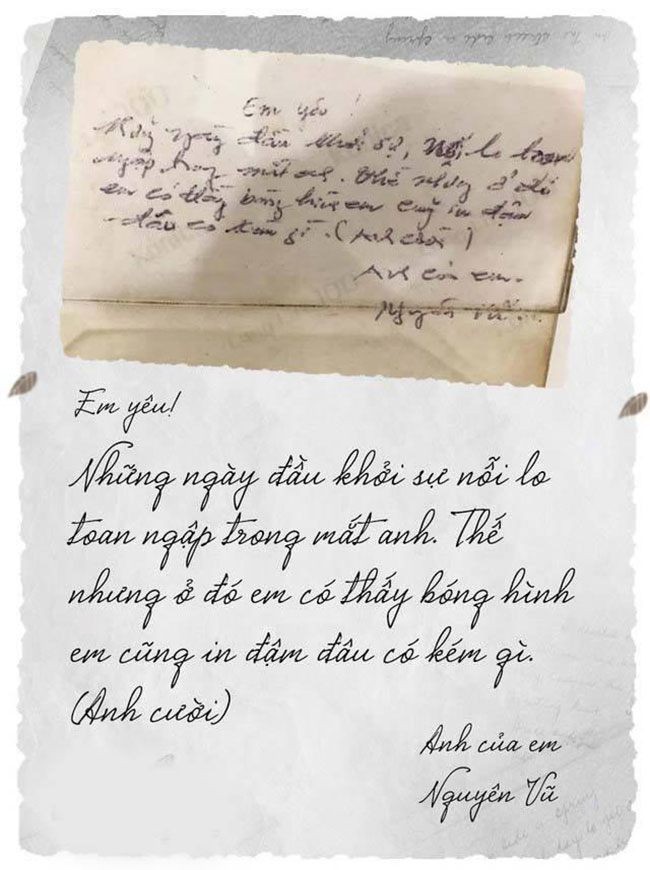 Em yêu!
Những ngày đầu khởi sự, Nỗi lo toan
ngập trong mắt anh. Thế nhưng ở đó
em có thấy bóng hình em cũng in đậm
đâu có kém gì. (Anh cười)
Anh của em.
Nguyên Vũ
Em yêu!
Những ngày đầu khởi sự nỗi lo
toan ngập trong mắt anh. Thế
nhưng ở đó em có thấy bóng hình
em cũng in đậm đâu có kém gì.
(Anh cười)
Anh của em
Nguyên Vũ